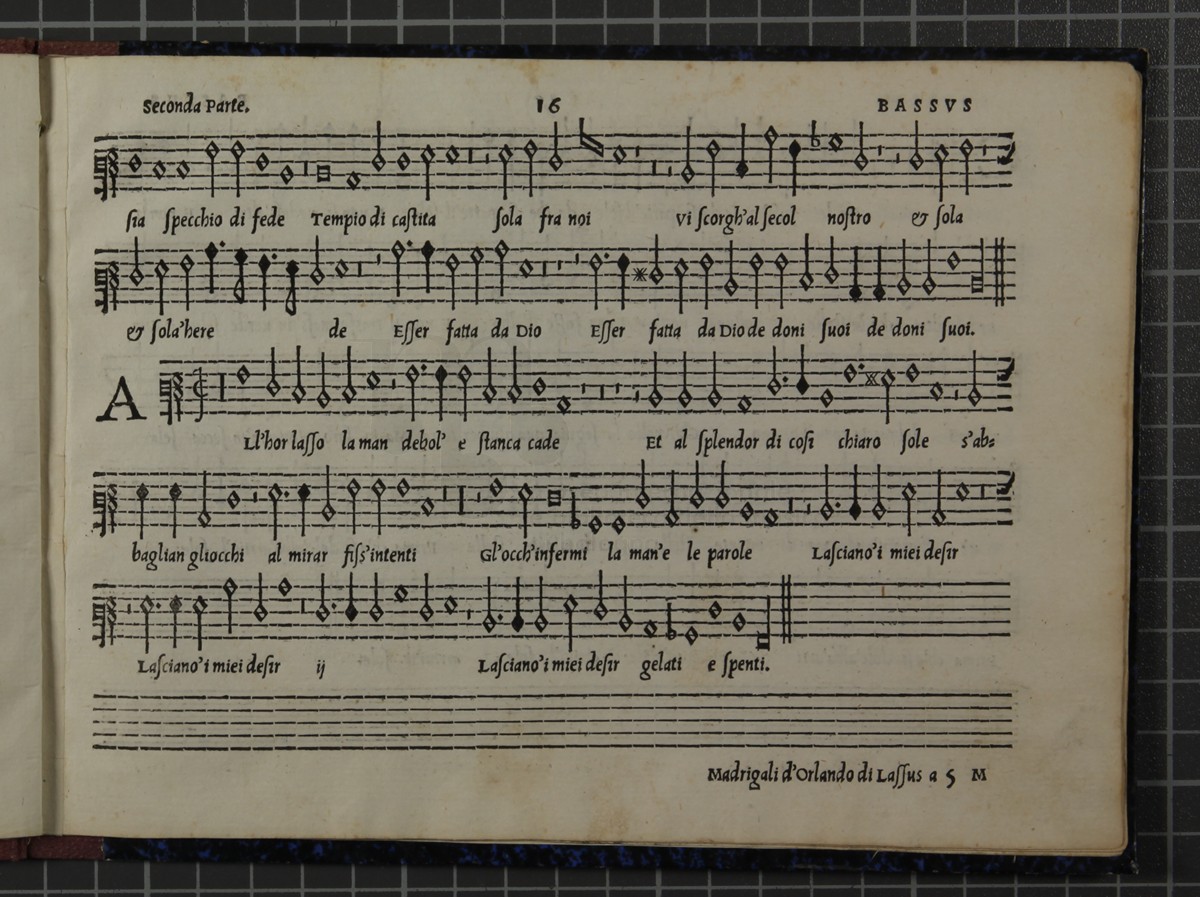 Seconda Parte. 16 BASSVS
ſia ſpecchio di fede Tempio di caſtita ſola fra noi vi ſcorgh'al ſecol noſtro & ſola
& ſola'here de Eſſer fatta da Dio Eſſer fatta da Dio de doni ſuoi de doni ſuoi.
A
Ll'hor laſſo la man debol' e ſtanca cade Et al ſplendor di coſi chiaro ſole s'ab=
baglian gliocchi al mirar fiſſ'intenti Gl'occh'infermi la man'e le parole Laſciano'i miei deſir
Laſciano'i miei deſir ij Laſciano'i miei deſir gelati e ſpenti.
Madrigali d'Orlando di Laſſus a 5 M